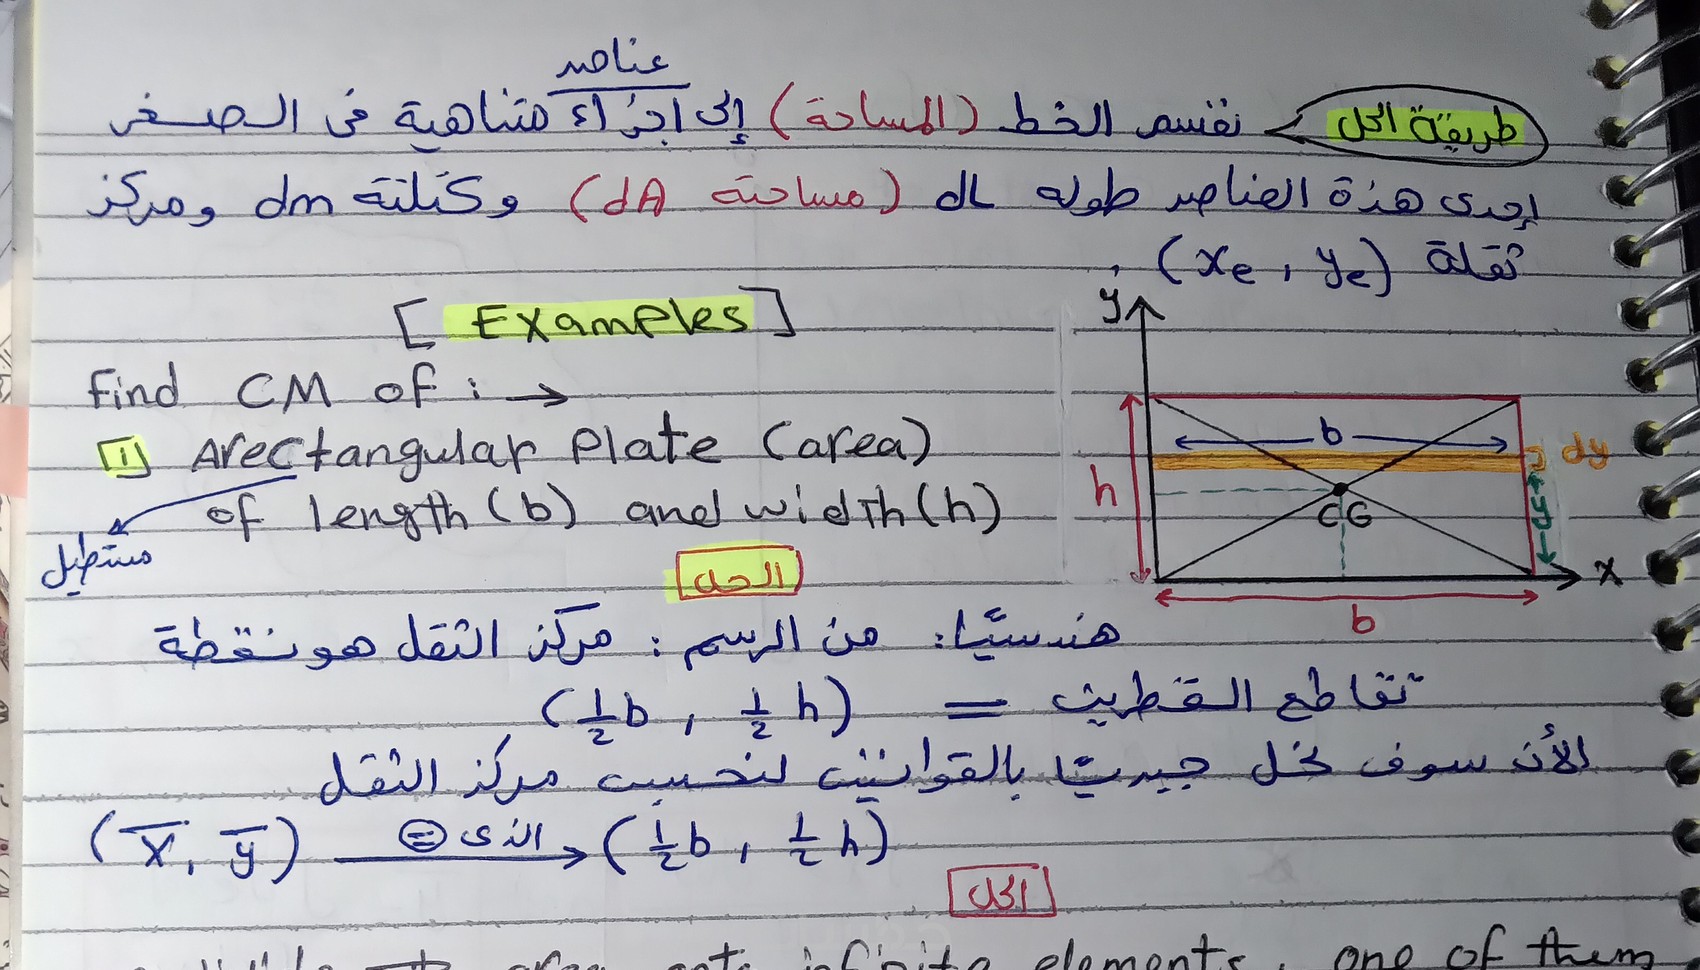 عناصر
طريقة الحل نقسم الخط (المساحة) إلى أجزاء متناهية فى الصغر
إحدى هذة العناصر طوله dL (مساحته dA) وكتلته dm ومركز
ثقلة (xe , ye) .
[Examples]
Find CM of : →
1 A rectangular Plate (area)
of length (b) and width (h)
مستطيل
y
b
dy
h
y
CG
x
b
الحل
هندسيًا: من الرسم : مركز الثقل هو نقطة
تقاطع القطرين = (1/2 b , 1/2 h)
الأن سوف نحل جبريًا بالقوانين لنحسب مركز الثقل
(x̄ , ȳ) الذى = → (1/2 b , 1/2 h)
الحل
area into infinite elements, one of them